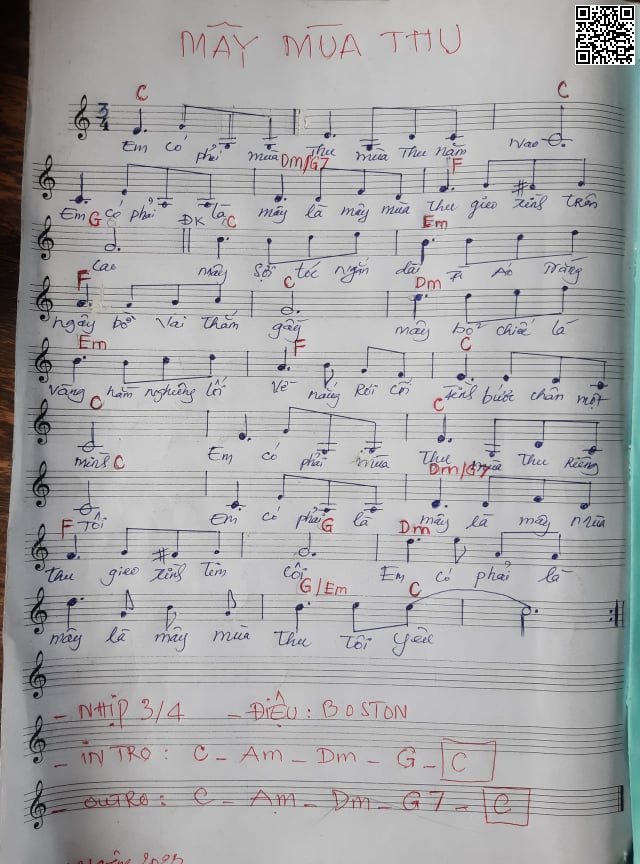 MÂY MÙA THU
C C
3/4
Em có phải mùa Thu mùa Thu năm Nao
Dm/G7 F
Em có phải là mây là mây mùa thu gieo xinh trên
G ĐK C Em
Cao mây Sợi tóc ngắn dài Tà Áo Trắng
F C Dm
ngây bởi Vai thắm gầy mây bơ chiếc lá
Em F C
Vàng năm nghiêng lối Về nắng Rơi bước chân một
C C
mình Em có phải mùa Thu mùa Thu Riêng
C Dm/G7
Tôi Em có phải là mây là mây mùa
F G Dm
thu gieo tim Côi Em có phải là
G/Em C
mây là mây mùa thu Tôi yêu
- NHỊP 3/4 - ĐIỆU: BOSTON
- INTRO: C - Am - Dm - G - C
- OUTRO: C - Am - Dm - G7 - C